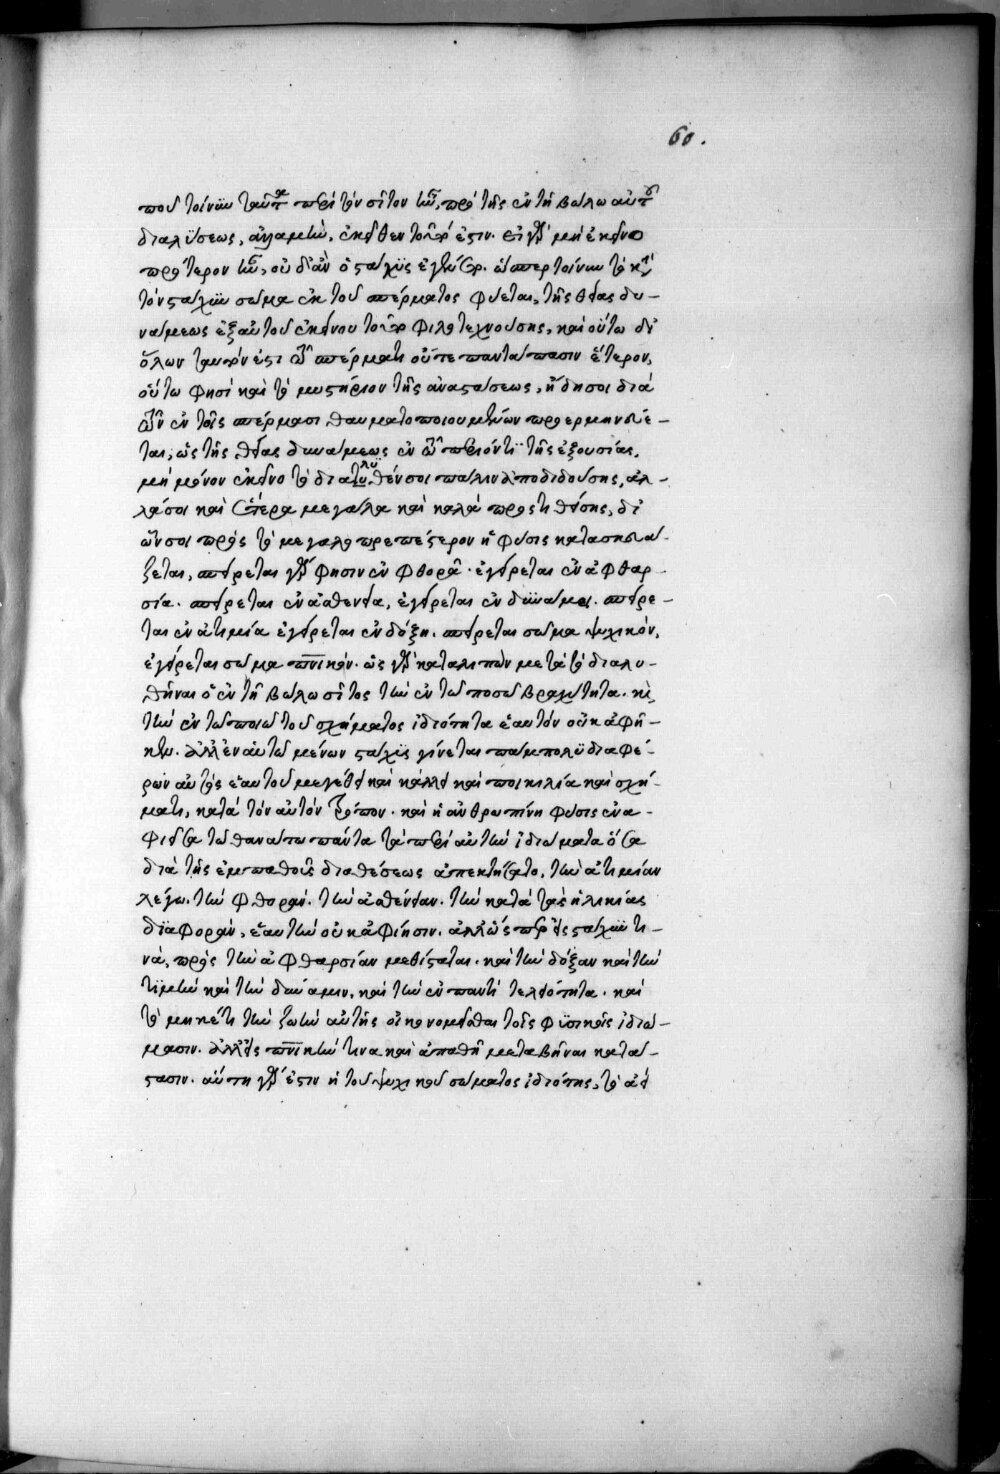 60.
που τοίνυν ταῦτα περὶ τὸν σῖτον ἦν, πρὸ τῆς ἐν τῆ βώλω αὐτοῦ
διαλύσεως, ἐκεῖθεν τοῦτό ἐστιν. εἰ γὰρ μὴ ἐκεῖνο
πρότερον ἦν, οὐδ' ἂν ὁ στάχυς ἐγένετο. ὥσπερ τοίνυν τὸ κατὰ
τὸν στάχυν σῶμα ἐκ τοῦ σπέρματος φύεται, τῆς θείας δυ-
νάμεως ἐξ αὐτοῦ ἐκείνου τοῦτο φιλοτεχνούσης, καὶ οὔτε δι'
ὅλων ταυτόν ἐστι τῶ σπέρματι οὔτε παντάπασιν ἕτερον,
οὕτω φησὶ καὶ τὸ μυστήριον τῆς ἀναστάσεως, ἤδη σοι διὰ
τῶν ἐν τοῖς σπέρμασι θαυματοποιουμένων προερμηνεύε-
ται, ὡς τῆς θείας δυνάμεως ἐν τῶ περιόντι τῆς ἐξουσίας,
μὴ μόνον ἐκεῖνο τὸ διαλυθέν σοι πάλιν ἀποδιδούσης, ἀλ-
λά σοι καὶ ἕτερα μεγάλα καὶ καλὰ προστιθείσης, δι'
ὧν σοι πρὸς τὸ μεγαλοπρεπέστερον ἡ φύσις κατασκευά-
ζεται, σπείρεται γάρ φησιν ἐν φθορᾶ. ἐγείρεται ἐν ἀφθαρ-
σία. σπείρεται ἐν ἀσθενεία, ἐγείρεται ἐν δυνάμει. σπείρε-
ται ἐν ἀτιμία ἐγείρεται ἐν δόξη. σπείρεται σῶμα ψυχικόν,
ἐγείρεται σῶμα πνικόν. ὡς γὰρ καταλιπὼν μετὰ τὸ διαλυ-
θῆναι ὁ ἐν τῆ βώλω σῖτος τὴν ἐν τῶ ποσῶ βραχύτητα. καὶ
τὴν ἐν τῶ ποιῶ τοῦ σχήματος ἰδιότητα ἑαυτὸν οὐκ ἀφῆ-
κεν. ἀλλ' ἐν αὑτῶ μένων στάχυς γίνεται παμπολὺ διαφέ-
ρων αὐτὸς ἑαυτοῦ μεγέθει καὶ κάλλει καὶ ποικιλία καὶ σχή-
ματι, κατὰ τὸν αὐτὸν τρόπον. καὶ ἡ ἀνθρωπίνη φύσις ἐνα-
φεῖσα τῶ θανάτω πάντα τὰ περὶ αὐτὴν ἰδιώματα ὅσα
διὰ τῆς ἐμπαθοῦς διαθέσεως ἐπεκτήσατο, τὴν ἀτιμίαν
λέγω. τὴν φθοράν. τὴν ἀσθένειαν. τὴν κατὰ τὰς ἡλικίας
διαφοράν, ἑαυτὴν οὐκ ἀφίησιν. ἀλλ' ὥσπερ εἰς στάχυν τι-
νὰ, πρὸς τὴν ἀφθαρσίαν μεθίσταται. καὶ τὴν δόξαν καὶ τὴν
τιμὴν καὶ τὴν δύναμιν, καὶ τὴν ἐν παντὶ τελειότητα. καὶ
τὸ μηκέτι τὴν ζωὴν αὐτῆς οἰκονομεῖσθαι τοῖς φυσικοῖς ἰδιώ-
μασιν. ἀλλ' εἰς πνικήν τινα καὶ ἀπαθῆ μεταβῆναι κατά-
στασιν. αὕτη γάρ ἐστιν ἡ τοῦ ψυχικοῦ σώματος ἰδιότης, τὸ ἀεὶ